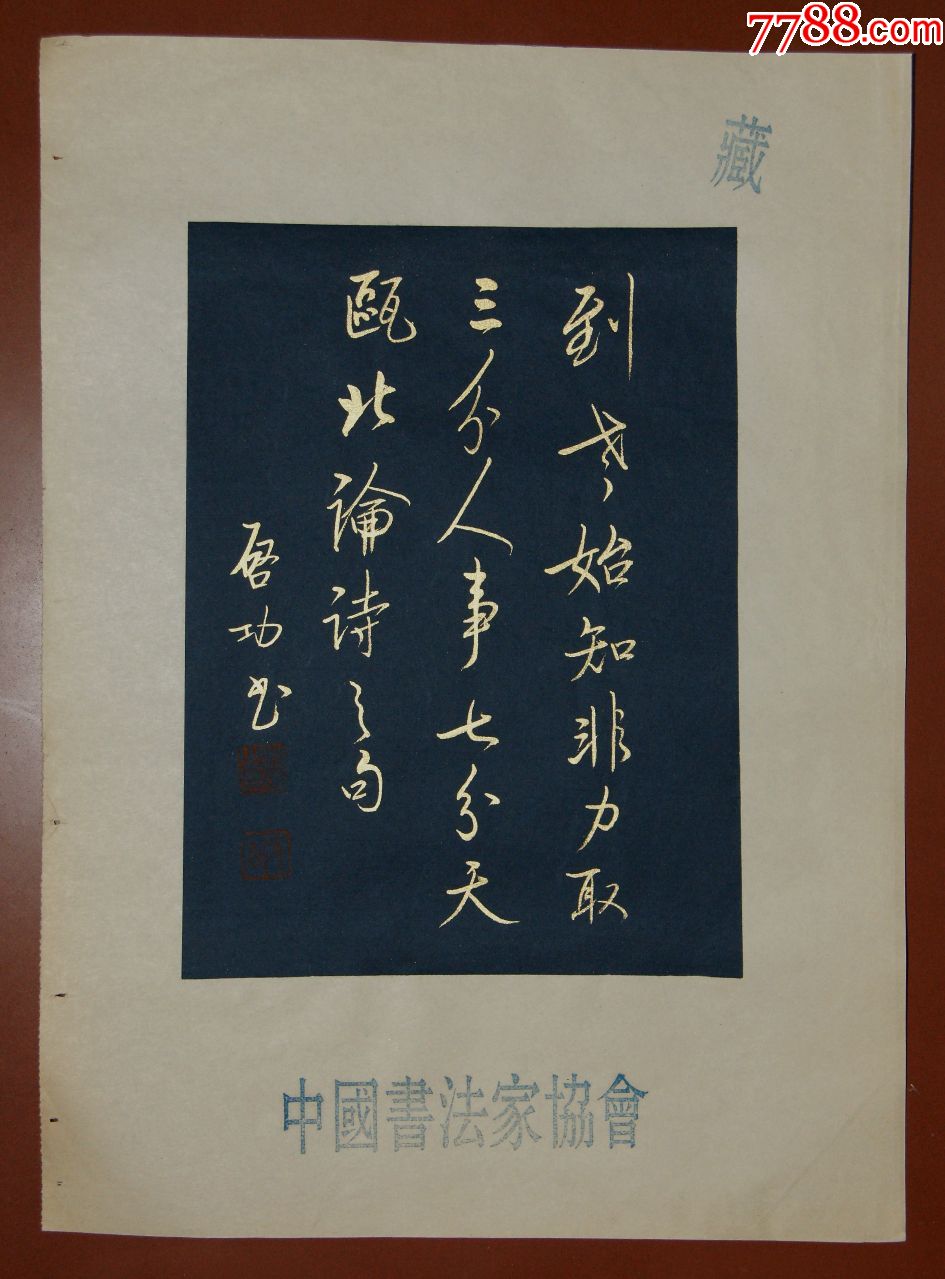 7788.com
藏
到老始知非力取
三分人事七分天
甌北論詩之句
启功书
中國書法家協會